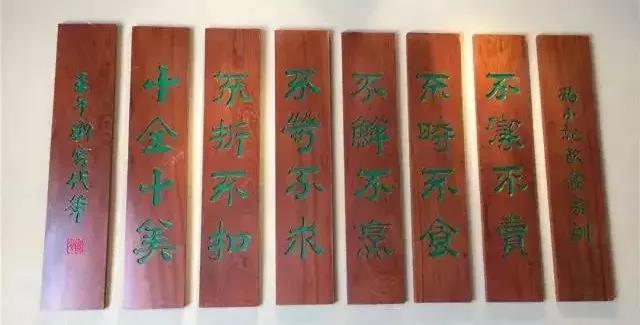 小記飲食家訓
不潔不賣
不時不食
不鮮不烹
不不求
不折不扣
十全十美
年代筆